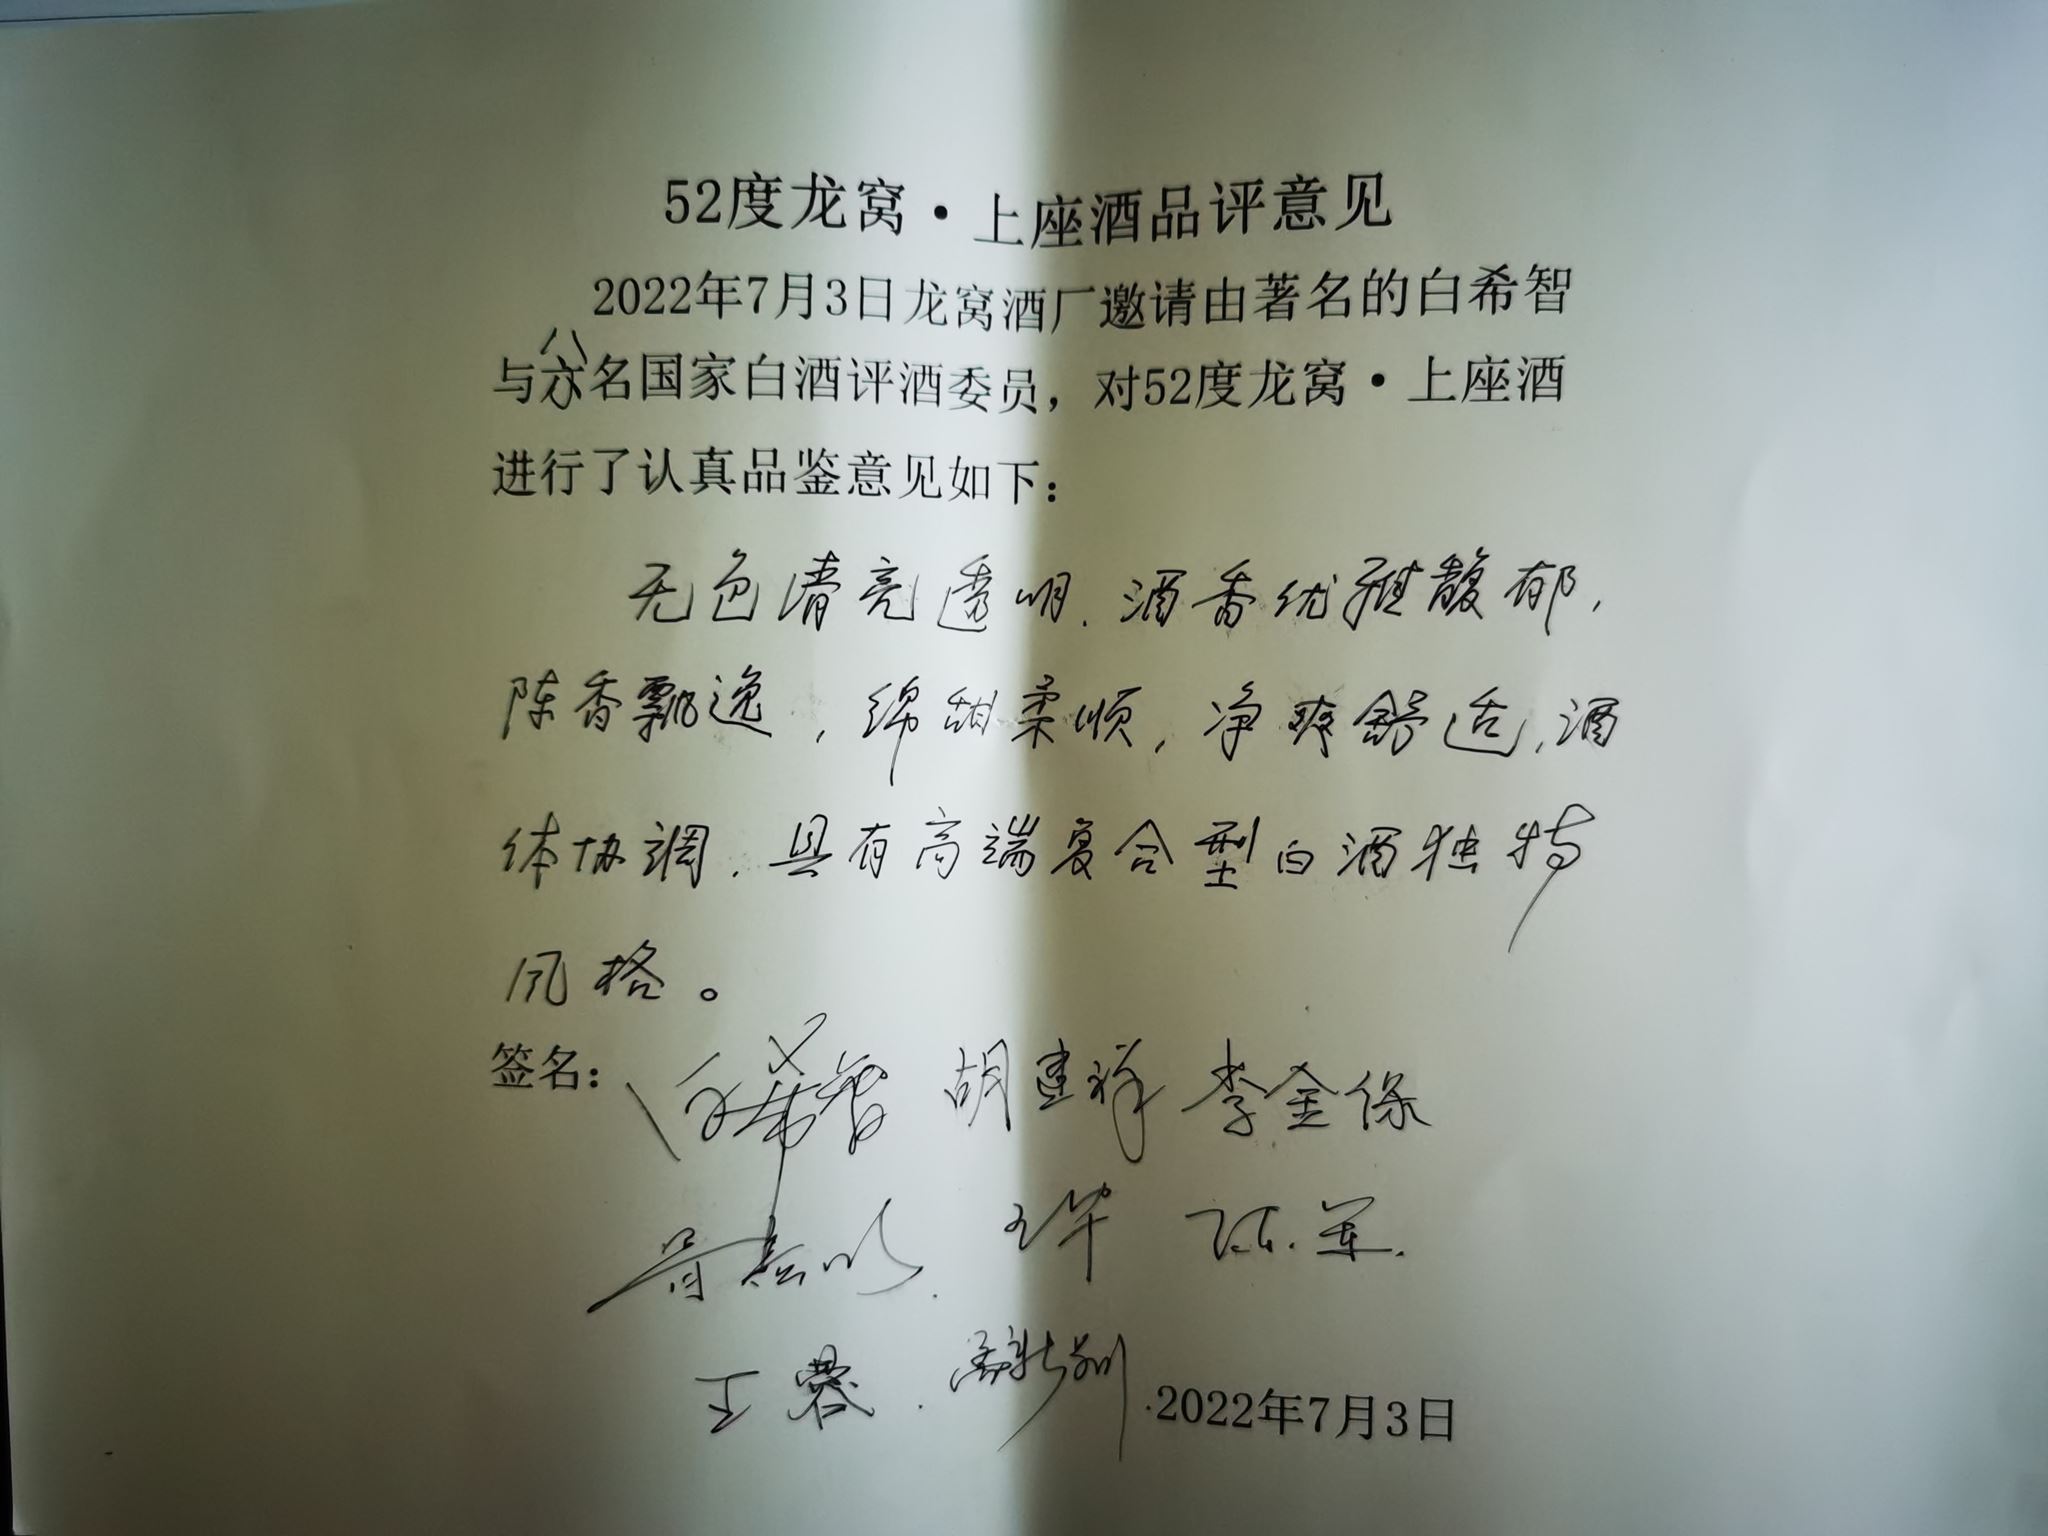 52度龙窝·上座酒品评意见
2022年7月3日龙窝酒厂邀请由著名的白希智
八
与六名国家白酒评酒委员，对52度龙窝·上座酒
进行了认真品鉴意见如下：
无色清亮透明.酒香优雅馥郁，
陈香飘逸，绵甜柔顺，净爽舒适，酒
体协调.具有高端复合型白酒独特
风格。
签名： 白希智 胡建祥 李金保
王华 陈军.
王蓉.
2022年7月3日